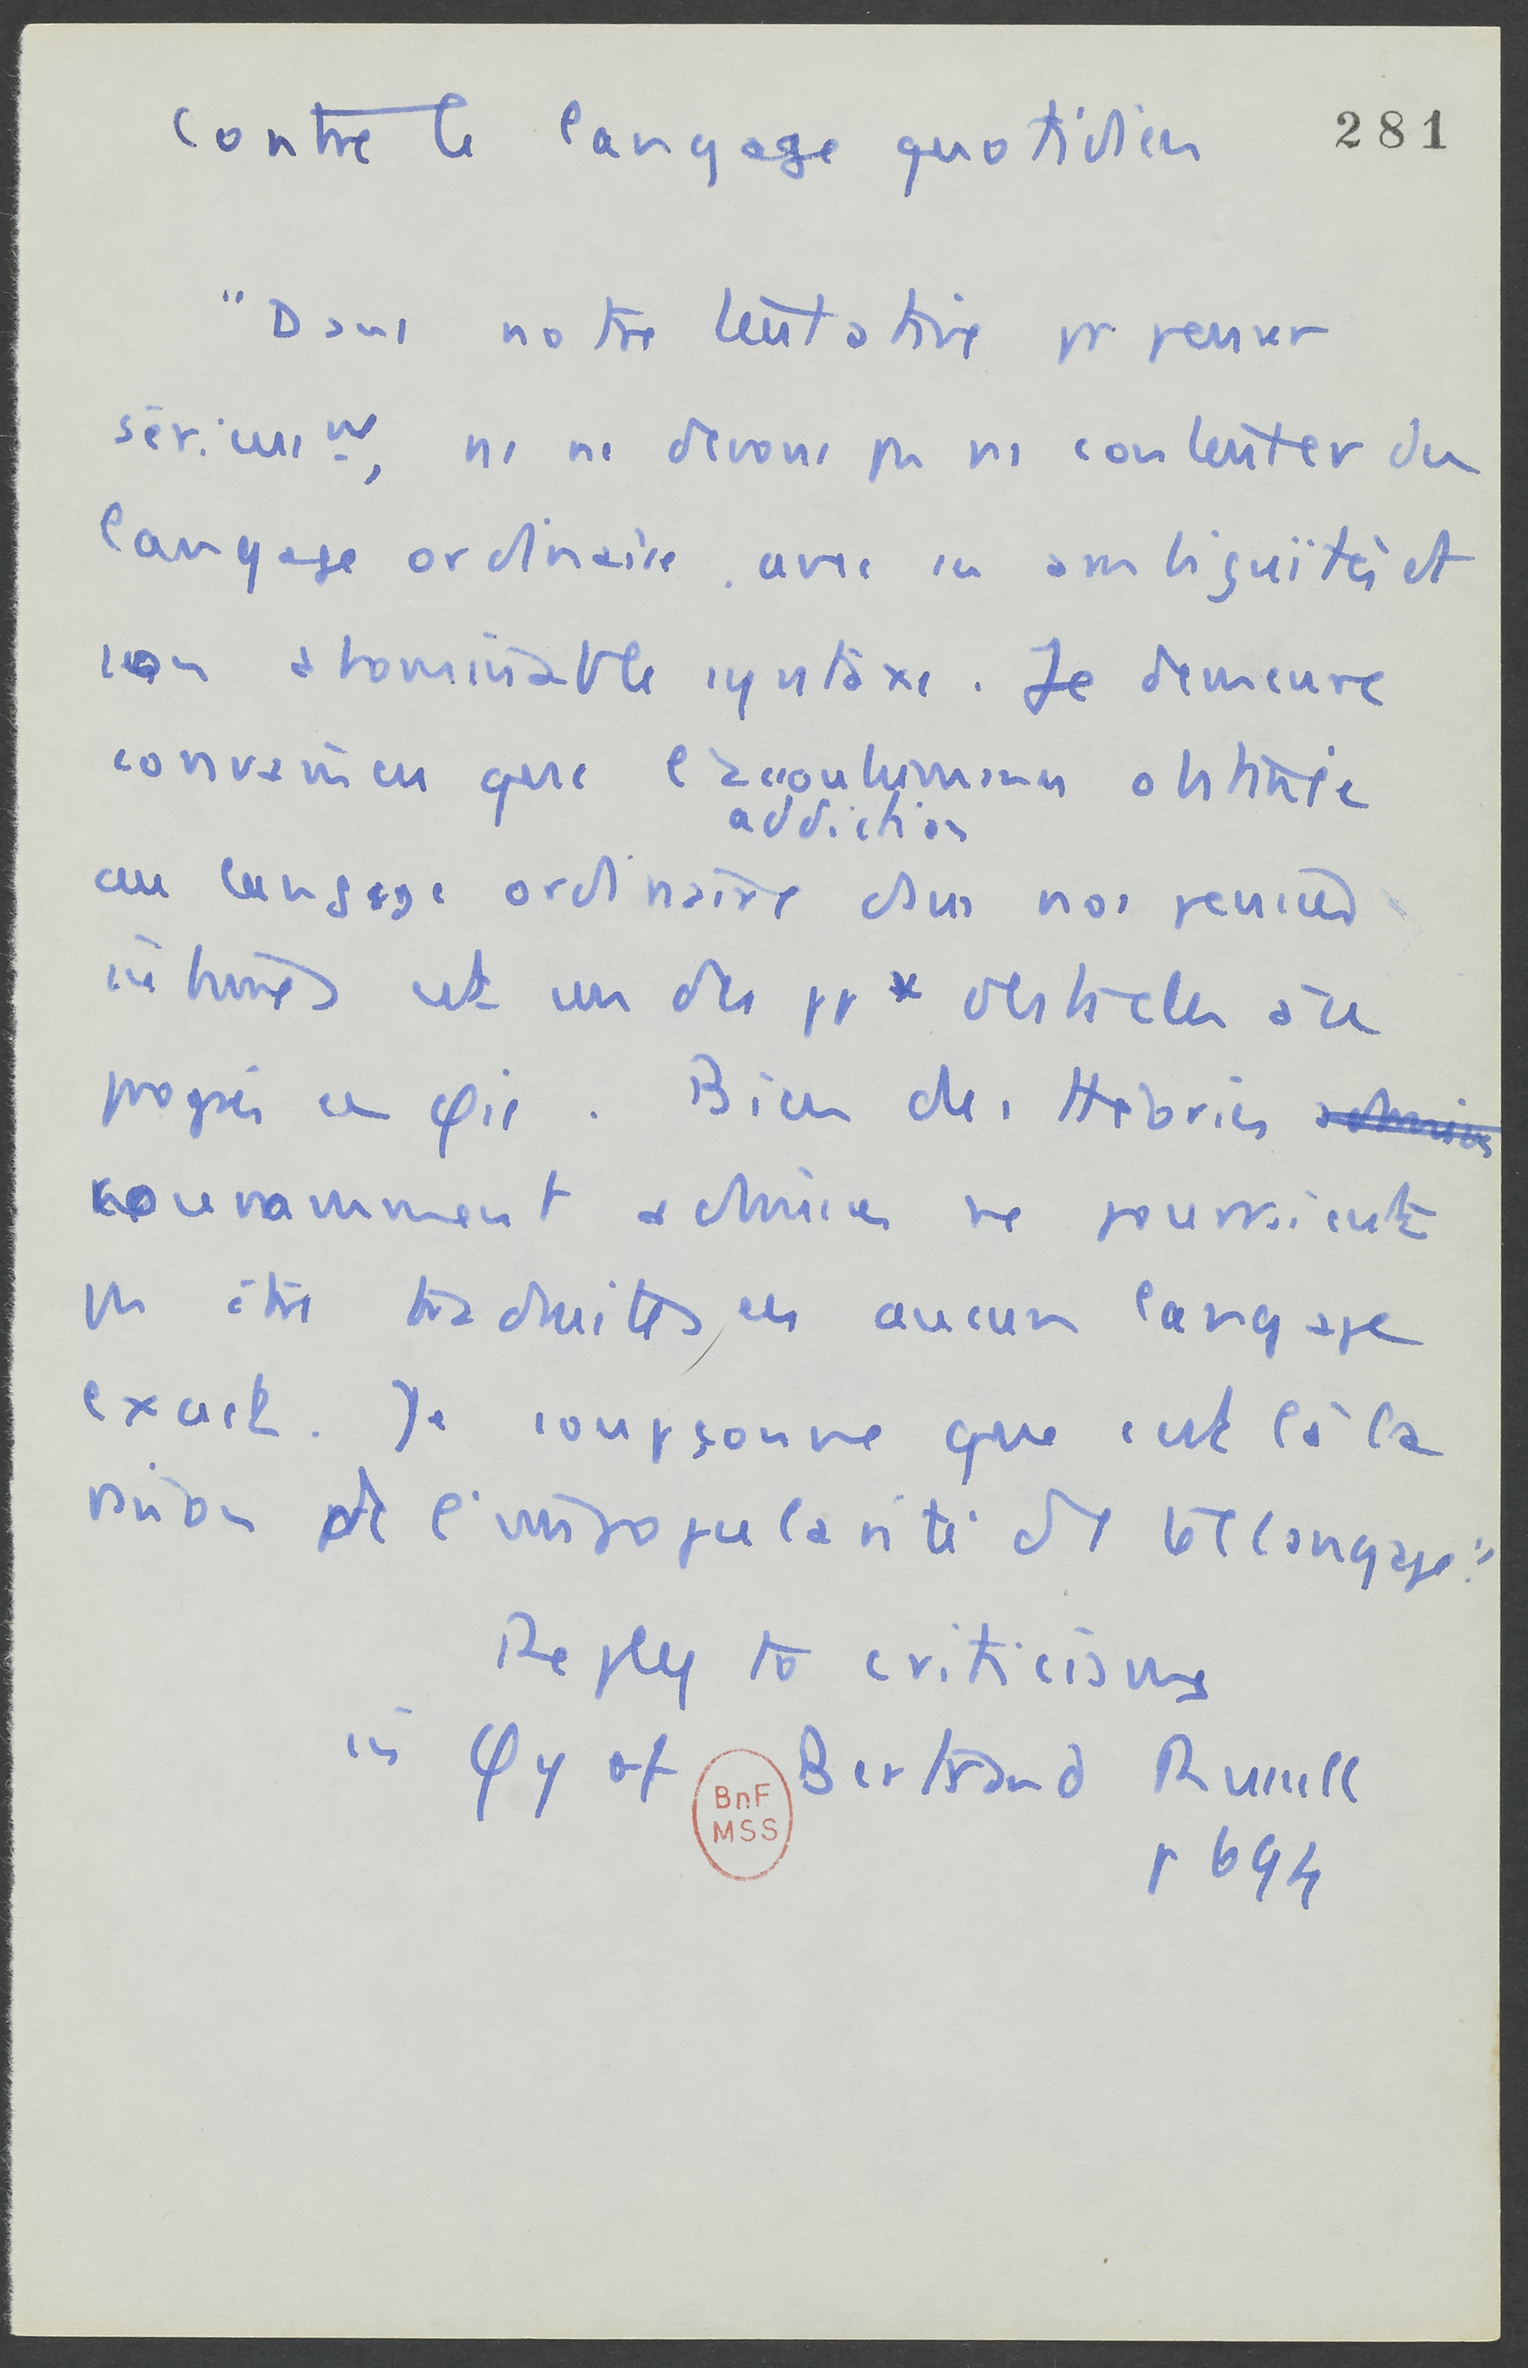 Contre le langage quotidien
281
"Dans notre tentative pr penser
sérieusᵗ, ns ne devons pas ns contenter du
langage ordinaire, avec ses ambiguïtés et
son abominable syntaxe. Je demeure
convaincu que l'accoutumance obstinée
addiction
au langage ordinaire dans nos pensées
intimes est un des ppx obstacles au
progrès en φie. Bien des théories admises
couramment admises ne pourraient
pas être traduites en aucun langage
exact. Je soupçonne que c'est là la
raison de l'impopularité de tel langage."
Reply to criticisms
in φy of Bertrand Russell
BnF
MSS
p 694